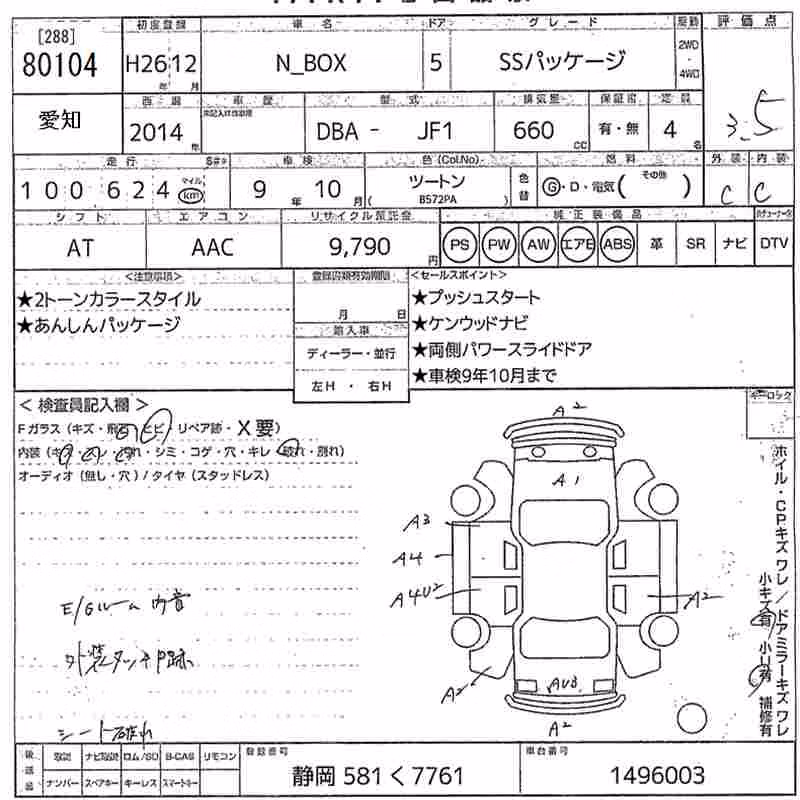 [288]
80104
初度登録
H26 12
年 月
車名
N_BOX
ドア
5
グレード
SSパッケージ
駆動
2WD
・
4WD
評価点
3.5
愛知
西暦
2014年
車歴
型式
DBA - JF1
排気量
660
CC
保証書
有・無
定員
4
名
外装 内装
C C
走行
100624
マイル
km
車検
9年10月
色(Col.No)
ツートン
( B572PA )
色替
燃料
G・D・電気( その他 )
シフト
AT
エアコン
AAC
リサイクル預託金
9,790円
純正装備品
PS PW AW エアB ABS 革 SR ナビ DTV
<注意事項>
★2トーンカラースタイル
★あんしんパッケージ
登録書類有効期限
月 日
輸入車
ディーラー・並行
左H ・ 右H
<セールスポイント>
★プッシュスタート
★ケンウッドナビ
★両側パワースライドドア
★車検9年10月まで
キーロック
<検査員記入欄>
Fガラス(キズ・飛石・ヒビ・リペア跡・X要)
内装(キズ・スレ・汚れ・シミ・コゲ・穴・キレ・破れ・割れ)
オーディオ(無し・穴)/タイヤ(スタッドレス)
E/Gルーム内音
外装タッチP跡
シート破れ
A2
A1
A3
A4
A4U2
A2
A2
AU3
A2
ホイル・CPキズワレ/ドアミラーキズワレ
小キズ有 小U有 補修有
後送品
取説 ナビ取説 ロム/SD B-CAS リモコン
ナンバー スペアキー キーレス スマートキー
登録番号
静岡 581 く 7761
車台番号
1496003